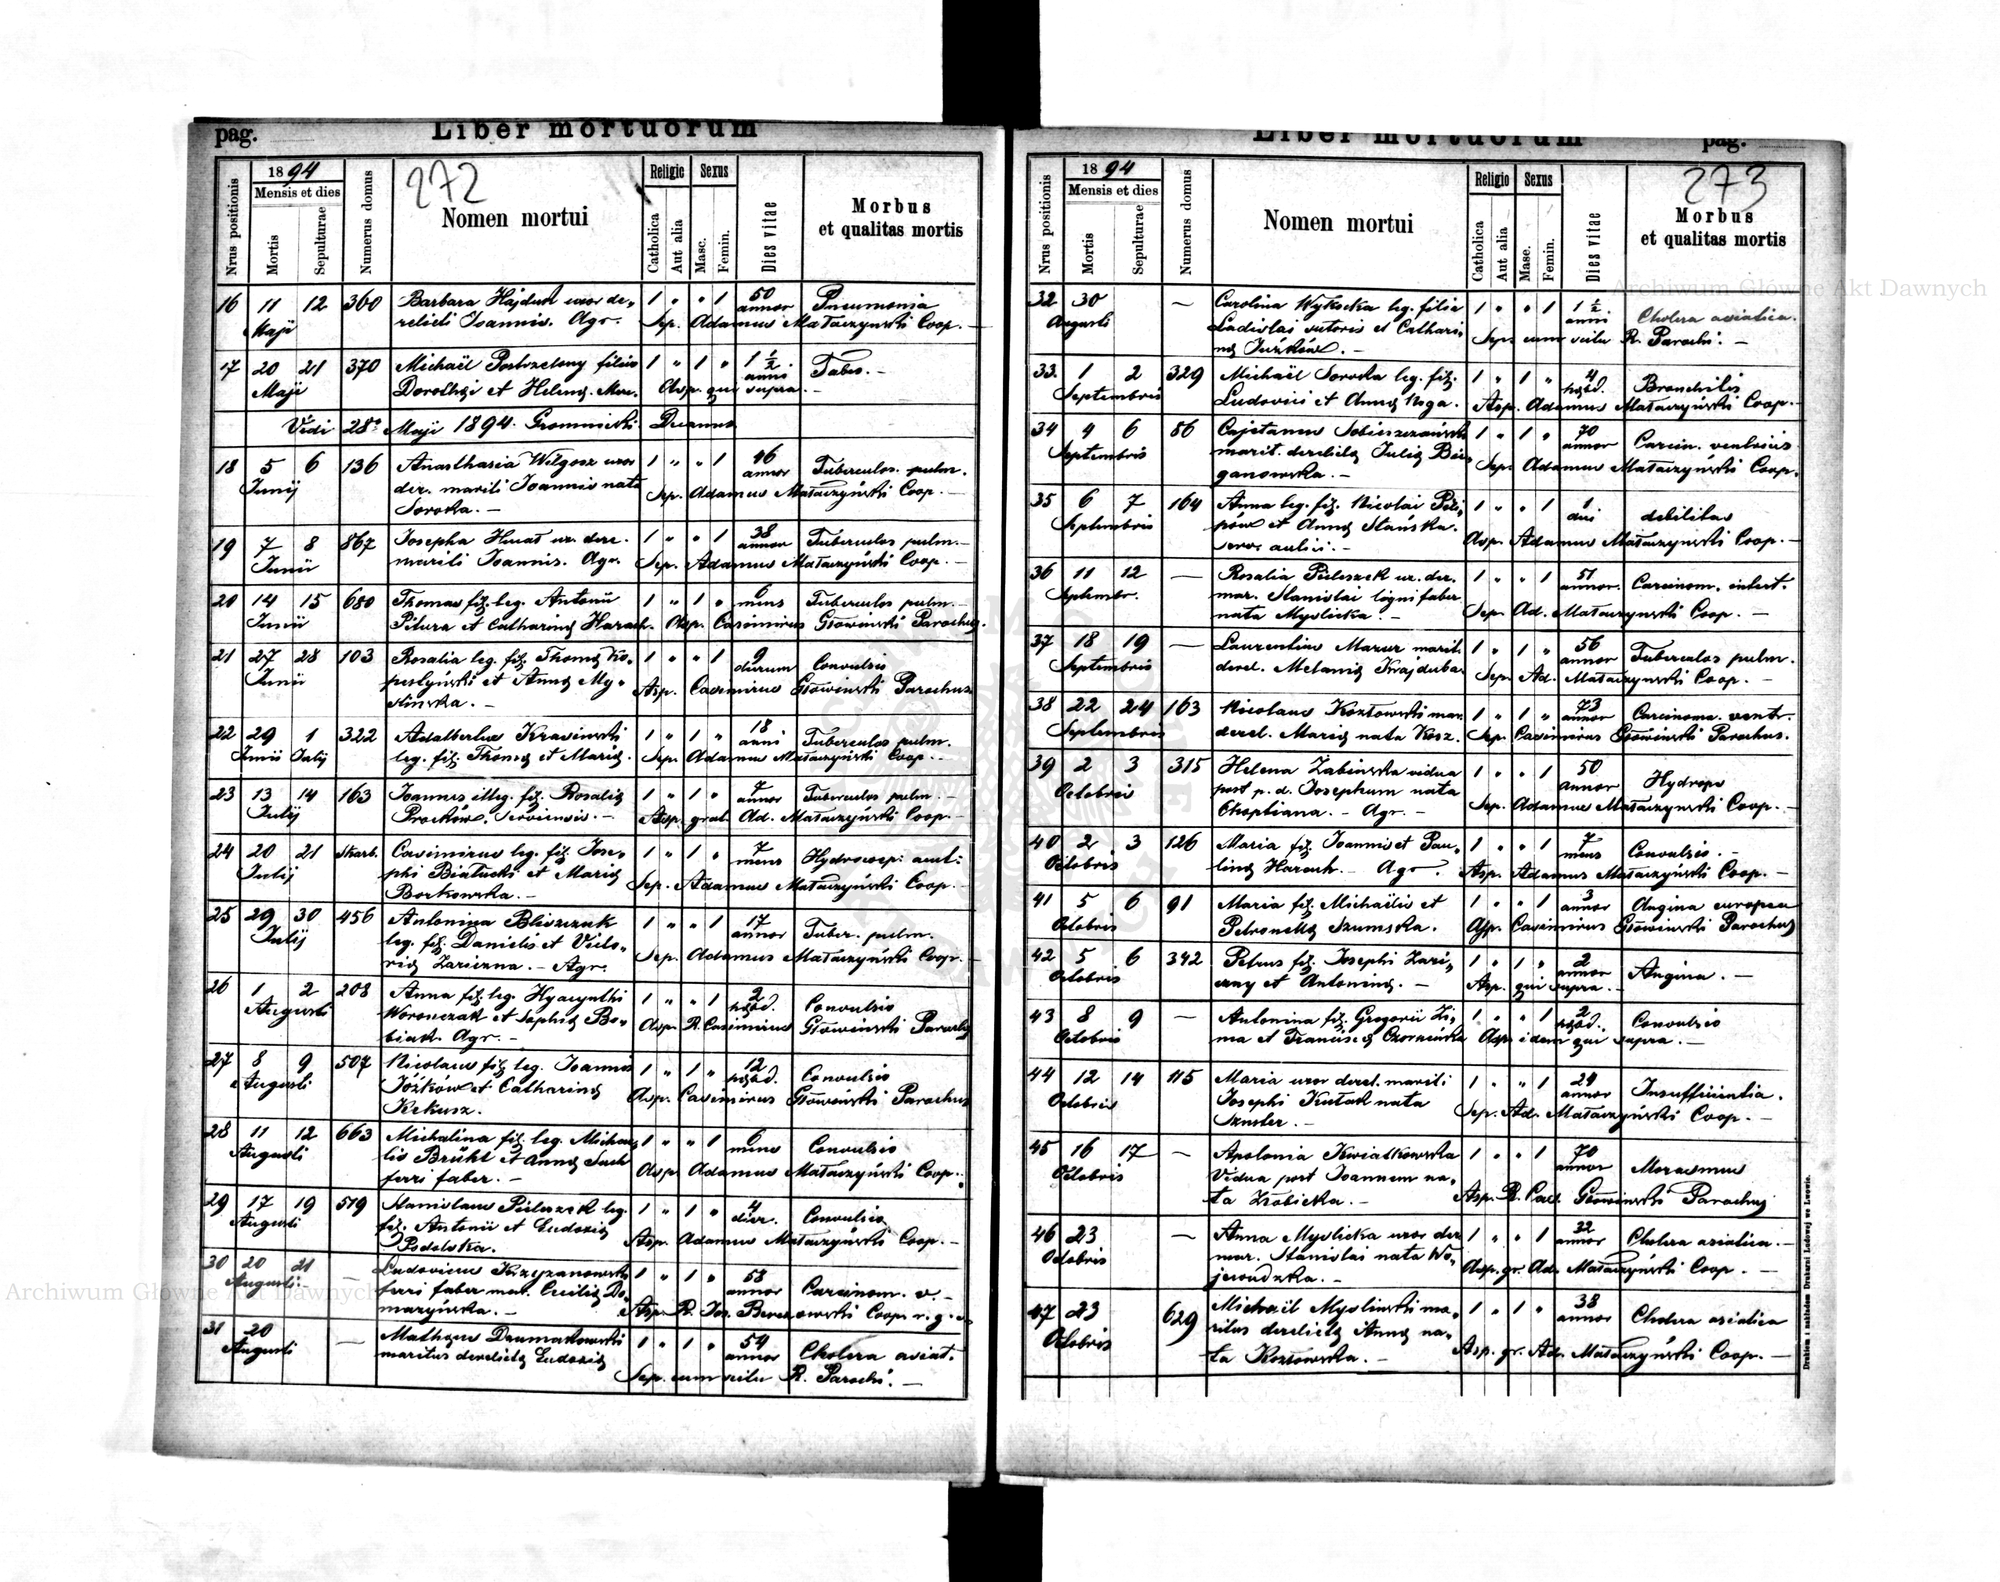 pag. Liber mortuorum
Nrus positionis
1894
Mensis et dies
Mortis
Sepulturae
Numerus domus
272
Nomen mortui
Religio
Catholica
Aut alia
Sexus
Masc.
Femin.
Dies vitae
Morbus
et qualitas mortis
16 11 12 360 Barbara Hajduk uxor de- 1 " " 1 50 Pneumonia
Maji relicti Joannis. Agr. Sep. Adamus Mataczyński Coop. —
annor
17 20 21 370 Michaël Postrzelony filius 1 " 1 " 1 1/2 Tabes. —
Maji Dorothei et Helenę. Asp. qui supra. —
anni
Vidi 28° Maji 1894. Gromnicki Decanus
18 5 6 136 Anasthasia Wilgosz uxor 1 " " 1 46 Tuberculos. pulm.
Junij der. mariti Joannis nata annor
Soroka. — Sep. Adamus Mataczyński Coop. —
19 7 8 867 Josepha Hnat ux. dere. 1 " " 1 38 Tuberculos pulm. —
Junii mariti Joannis. Agr. Sep. Adamus Mataczyński Coop. —
annor
20 14 15 680 Thomas fil. leg. Antonii 1 " 1 " 6 mens Tuberculos pulm. —
Junii Pitura et Catharinę Harach. Asp. Casimirus Głowiński Parochus.
21 27 28 103 Rosalia leg. fil. Thomę Ko- 1 " " 1 9 dierum Convulsio
Junii pestyński et Annę My- Asp. Casimirus Głowiński Parochus
slińska. —
22 29 1 322 Adalbertus Krasiński 1 " 1 " 18 anni Tuberculos pulm.
Junii Julij leg. fil. Thomę et Marię. Sep. Adamus Mataczyński Coop. —
23 13 14 163 Joannes illeg. fil. Rosalię 1 " 1 " 7 annor Tuberculos pulm. —
Julij Proćków. Serviensis. — Asp. grat. Ad. Mataczyński Coop. —
24 20 21 Skarb. Casimirus leg. fil. Jose- 1 " 1 " 7 mens Hydrocep. acut.
Julij phi Białucki et Marię Sep. Adamus Mataczyński Coop. —
Borkowska. —
25 29 30 456 Antonina Bliszczak 1 " " 1 17 annor Tuber. pulm.
Julij leg. fil. Danielis et Victo- Sep. Adamus Mataczyński Coop. —
rię Zariczna. — Agr.
26 1 2 203 Anna fil. leg. Hyacynthi 1 " " 1 2 hebd. Convulsio
Augusti Woronczak et Sophię Bo- Asp. R. Casimirus Głowiński Parochus
biak. Agr. —
27 8 9 507 Nicolaus fil. leg. Joannis 1 " 1 " 12 hebd. Convulsio
Augusti Jóżków et Catharinę Asp. Casimirus Głowiński Parochus
Kekusz.
28 11 12 663 Michalina fil. leg. Michae- 1 " " 1 6 mens Convulsio
Augusti lis Brükt et Annę Asp. Adamus Mataczyński Coop.
ferri faber. —
29 17 19 519 Stanislaus Puleszek leg. 1 " 1 " 4 dier. Convulsio
Augusti fil. Antonii et Eudoxię Asp. Adamus Mataczyński Coop. —
Podolska. —
30 20 21 — Ludovicus Krzyzanowski 1 " 1 " 58 annor Carcinom. v. —
Augusti. ferri faber mar. Cecilię Do-
marzyńska. — Asp. R. Jos. Berezowski Coop. r. g.
31 20 — Mathęus Daumakowski 1 " 1 " 54 annor Cholera asiat.
Augusti maritus derelictę Eudoxię Sep. cum scitu R. Parochi. —
Liber mortuorum pag.
Nrus positionis
1894
Mensis et dies
Mortis
Sepulturae
Numerus domus
Nomen mortui
Religio
Catholica
Aut alia
Sexus
Masc.
Femin.
Dies vitae
273
Morbus
et qualitas mortis
32 30 — Carolina Wysocka leg. filia 1 " " 1 1 1/2 anni Cholera asiatica.
Augusti Ladislai sutoris et Cathari- Sep. cum scitu R. Parochi. —
nę Juzków. —
33. 1 2 329 Michaël Soroka leg. fil. 1 " 1 " 4 hebd. Bronchitis
Septembris Ludovici et Annę Noga. Asp. Adamus Mataczyński Coop. —
34 4 6 86 Cajetanus Sobieszczański 1 " 1 " 70 annor Carcin. ventricis
Septembris marit. derelictę Julię Bie- Sep. Adamus Mataczyński Coop.
ganowska. —
35 6 7 164 Anna leg. fil. Nicolai Pili- 1 " " 1 1 diei debilitas
Septembris pów et Annę Stańska. Asp. Adamus Mataczyński Coop. —
servor aulici. —
36 11 12 — Rosalia Puleszek ux. der. 1 " " 1 51 annor. Carcinom. intest.
Septembr. mar. Stanislai ligni faber Sep. Ad. Mataczyński Coop. —
nata Myslicka. —
37 18 19 — Laurentius Mazur marit. 1 " 1 " 56 annor Tuberculos pulm.
Septembris derel. Melanię Krajduba Sep. Ad. Mataczyński Coop. —
38 22 24 163 Nicolaus Kozłowski mar. 1 " 1 " 73 annor Carcinoma. ventr.
Septembris derel. Marię nata Kosz. Sep. Casimirus Głowiński Parochus.
39 2 3 315 Helena Zabinska vidua 1 " " 1 50 annor Hydrops
Octobris post p. d. Josephum nata Sep. Adamus Mataczyński Coop. —
Chaptiana. — Agr. —
40 2 3 126 Maria fil. Joannis et Pau- 1 " " 1 7 mens Convulsio. —
Octobris linę Harach. — Agr. Asp. Adamus Mataczyński Coop. —
41 5 6 91 Maria fil. Michaëlis et 1 " " 1 3 annor Angina
Octobris Petronellę Szumska. Asp. Casimirus Głowiński Parochus
42 5 6 342 Petrus fil. Josephi Zari- 1 " 1 " 2 annor Angina. —
Octobris czny et Antoninę. — Asp. qui supra. —
43 8 9 — Antonina fil. Gregorii Zi- 1 " " 1 2 hebd. Convulsio
Octobris ma et Franciscę Czornieńka Asp. idem qui supra. —
44 12 14 115 Maria uxor derel. mariti 1 " " 1 24 annor Insufficientia.
Octobris Josephi Kutak nata Sep. Ad. Mataczyński Coop. —
Szuster. —
45 16 17 — Apolonia Kwiatkowska 1 " " 1 70 annor Morasmus
Octobris Vidua post Joannem na- Asp. R. Cas. Głowiński Parochus
ta Zrobicka. —
46 23 — Anna Myslicka uxor der 1 " " 1 32 annor Cholera asiatica. —
Octobris mar. Stanislai nata Wo- Asp. gr. Ad. Mataczyński Coop. —
jewudzka. —
47 23 629 Michaël Mysliński ma- 1 " 1 " 38 annor Cholera asiatica
Octobris ritus derelictę Annę na- Asp. gr. Ad. Mataczyński Coop. —
ta Kozłowska. —
Drukiem i nakładem Drukarni Ludowej we Lwowie.
Archiwum Główne Akt Dawnych
Archiwum Główne Akt Dawnych